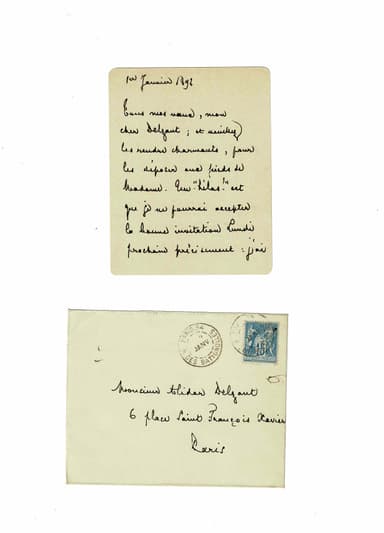 1er Janvier 1892
Tous mes vœux, mon
cher Delzant ; et
les rendre charmants, pour
les déposer aux pieds de
Madame. Un "hélas!" est
que je ne pourrai accepter
la bonne invitation Lundi
prochain précisément : j'ai
PARIS
JANV
DES BATIGNOLLES
15
Monsieur Alidor Delzant
6 place Saint François Xavier
Paris